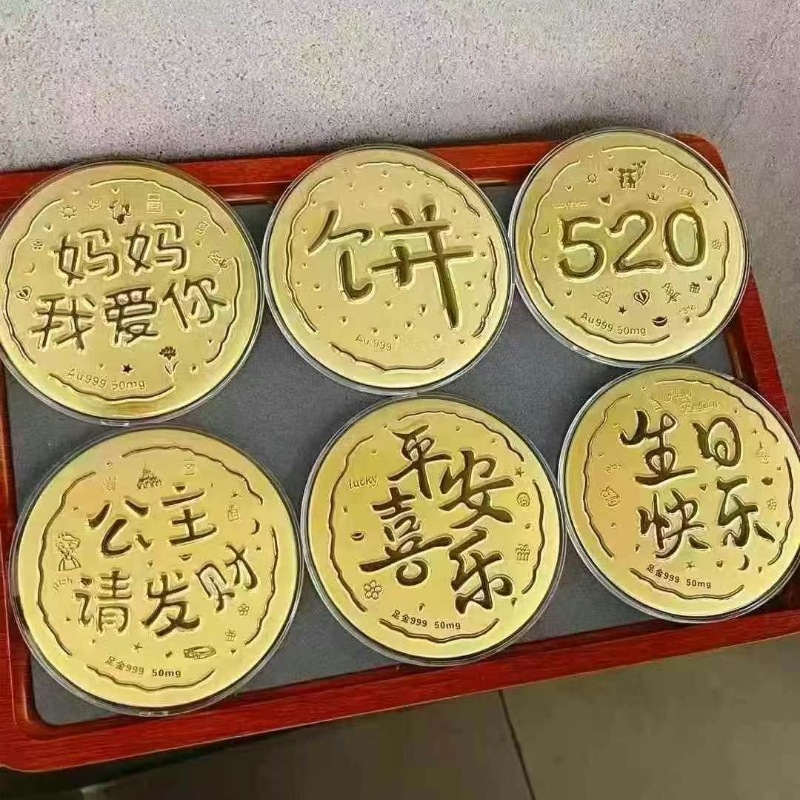 妈妈
我爱你
Au999 50mg
饼
Au999
520
Au999 50mg
公主
请发财
rich
足金999 50mg
lucky
平安
喜乐
足金999 50mg
Happy
Birthday
生日
快乐
足金999 50mg